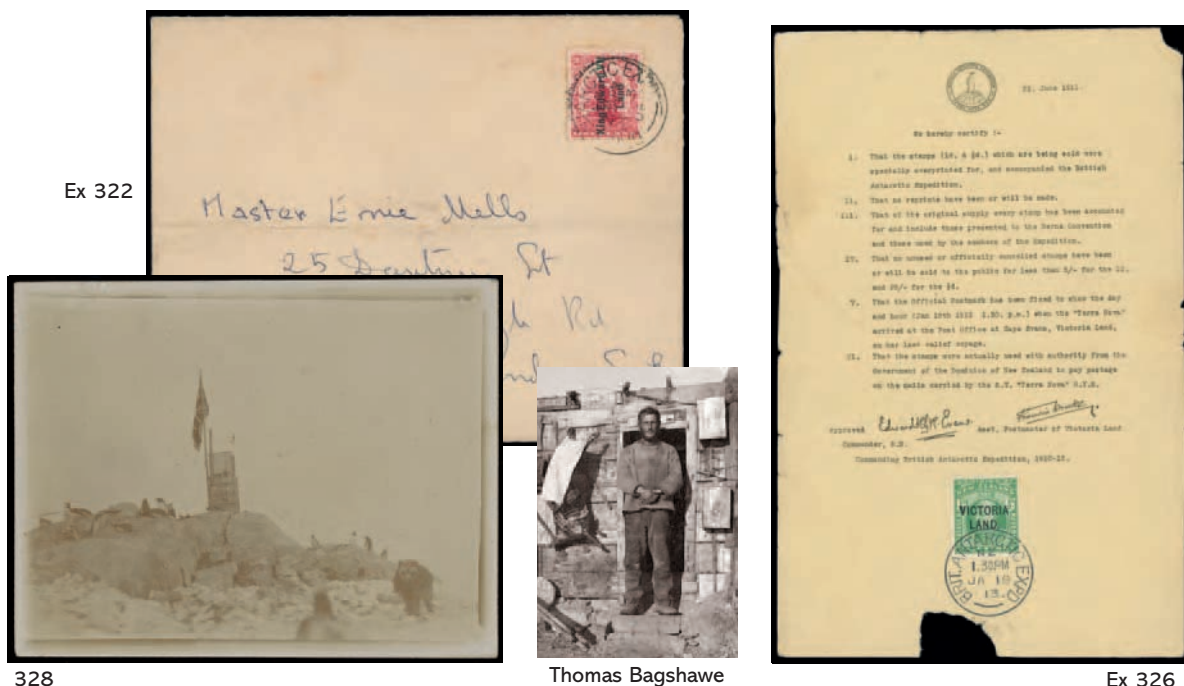 Ex 322
King Edward VII
Land
Master Ernie Mells
25
St
Rd
328
Thomas Bagshawe
Ex 326
June 1913.
We hereby certify :-
i. That the stamps (1d. & ½d.) which are being sold were
specially overprinted for, and accompanied the British
Antarctic Expedition.
ii. That no reprints have been or will be made.
iii. That of the original supply every stamp has been accounted
for and include those presented to the Berne Convention
and those used by the members of the Expedition.
IV. That no unused or officially cancelled stamps have been
or will be sold to the public for less than 5/- for the 1d.
and 20/- for the ½d.
V. That the Official Postmark has been fixed to show the day
and hour (Jan 18th 1913 1.30. p.m.) when the "Terra Nova"
arrived at the Post Office at Cape Evans, Victoria Land,
on her last relief voyage.
VI. That the stamps were actually used with authority from the
Government of the Dominion of New Zealand to pay postage
on the mails carried by the S.Y. "Terra Nova" R.Y.S.
Approved Edward R G R Evans Asst. Postmaster of Victoria Land
Commander, R.N.
Commanding British Antarctic Expedition, 1910-13.
VICTORIA
LAND.
BRIT. ANTARCTIC EXPD
1.30PM
JA 18
13